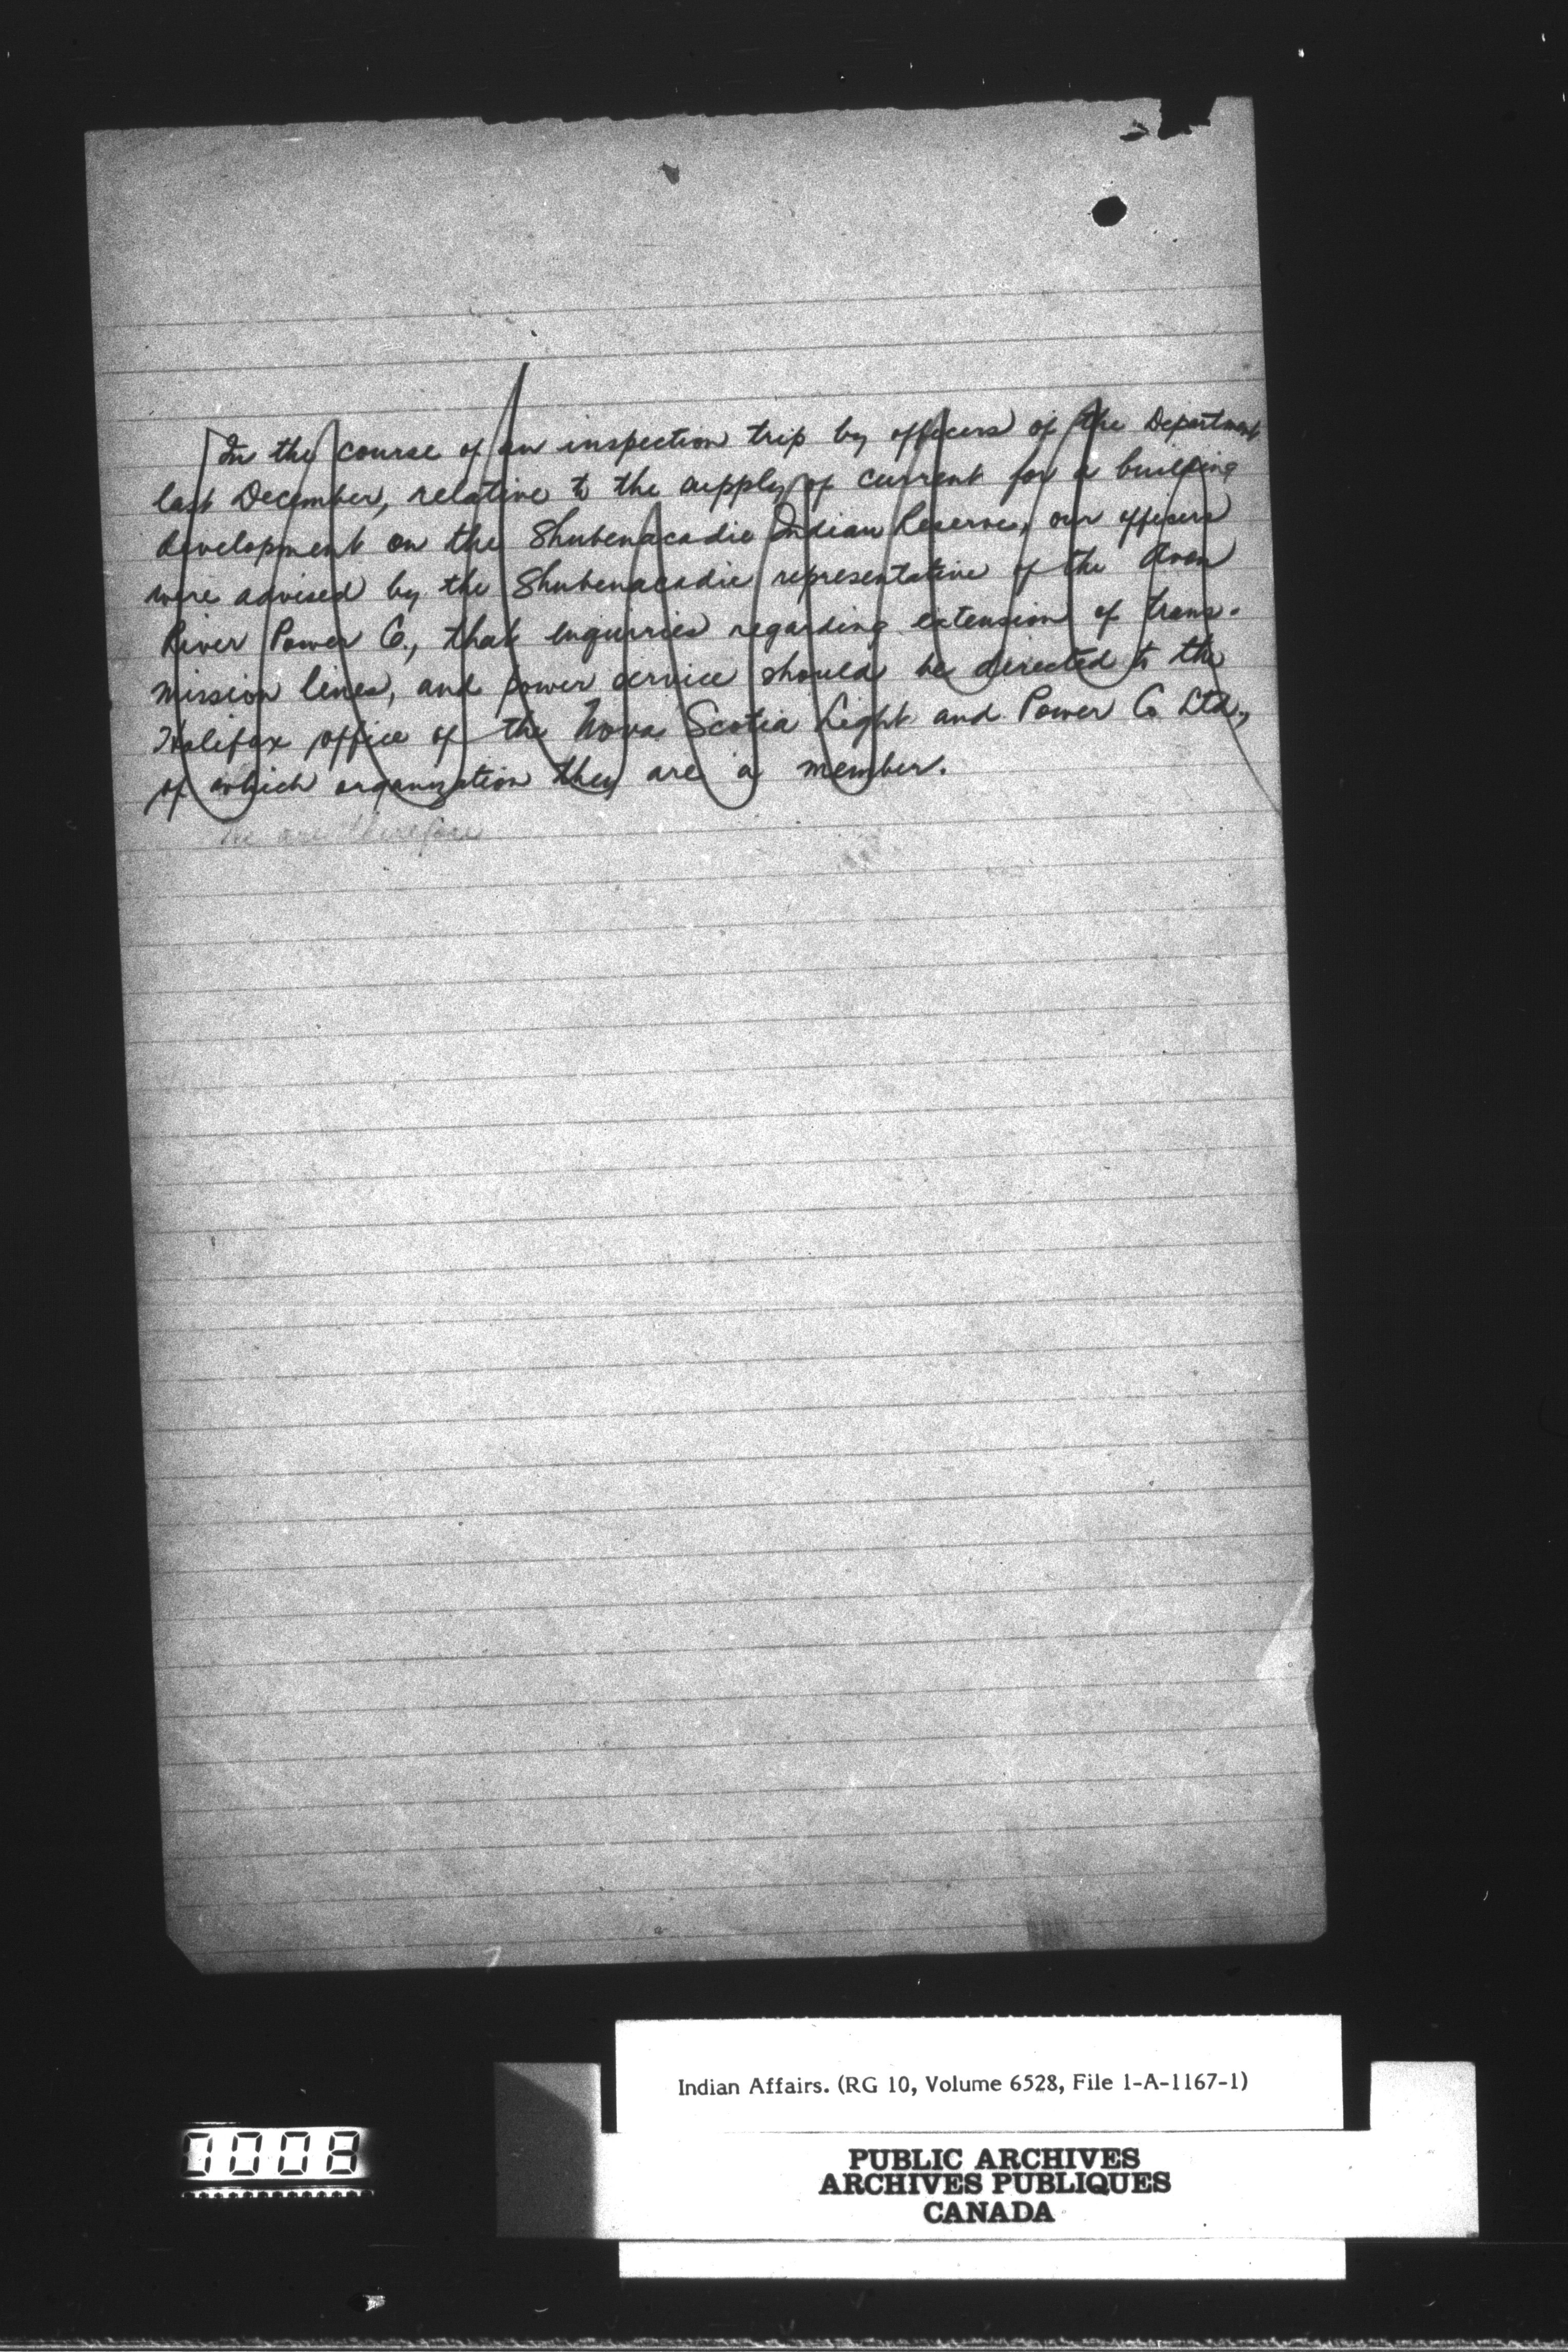 In the course of an inspection trip by officers of the Department
last December, relative to the supply of current for a building
development on the Shubenacadie Indian Reserve, our officers
were advised by the Shubenacadie representative of the Avon
River Power Co., that enquiries regarding extension of trans-
mission lines, and power service should be directed to the
Halifax office of the Nova Scotia Light and Power Co Ltd.,
of which organization they are a member.
We are therefore
0008
Indian Affairs. (RG 10, Volume 6528, File 1-A-1167-1)
PUBLIC ARCHIVES
ARCHIVES PUBLIQUES
CANADA